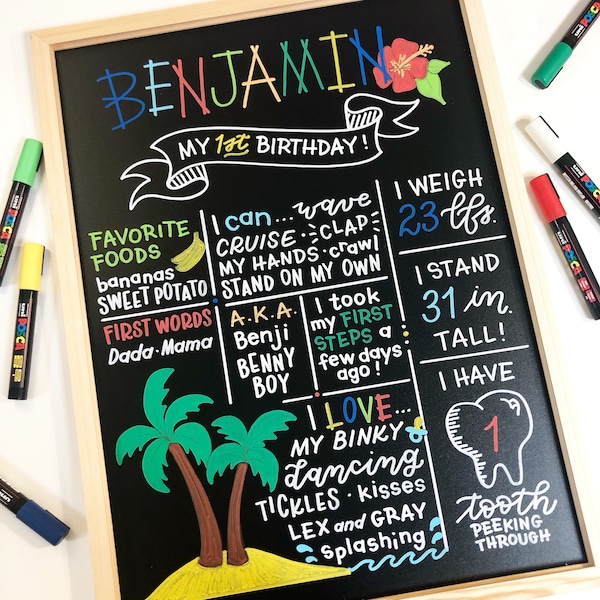 BENJAMIN
MY 1st BIRTHDAY!
FAVORITE
FOODS
bananas
SWEET POTATO
I can... wave
CRUISE · CLAP
MY HANDS · crawl
STAND ON MY OWN
I WEIGH
23 lbs.
FIRST WORDS
Dada · Mama
A.K.A.
Benji
BENNY
BOY
I took
my FIRST
STEPS a
few days
ago!
I STAND
31 in.
TALL!
I LOVE...
MY BINKY
dancing
TICKLES · kisses
LEX and GRAY
splashing
I HAVE
1
tooth
PEEKING
THROUGH
uni POSCA
uni POSCA
uni POSCA
uni POSCA
uni POSCA